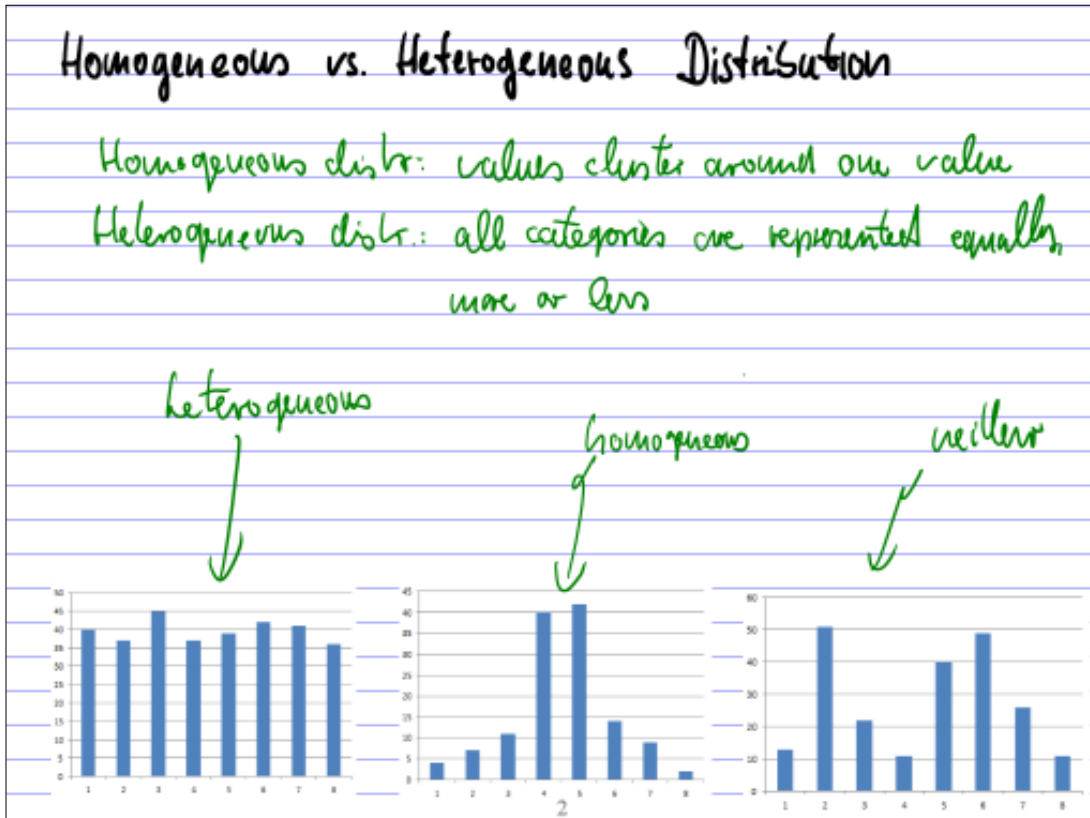 Homogeneous vs. Heterogeneous Distribution
Homogeneous distr.: values cluster around one value
Heterogeneous distr.: all categories are represented equally,
more or less
heterogeneous
homogeneous
neither
50
45
40
35
30
25
20
15
10
5
0
1 2 3 4 5 6 7 8
45
40
35
30
25
20
15
10
5
0
1 2 3 4 5 6 7 8
60
50
40
30
20
10
0
1 2 3 4 5 6 7 8
2